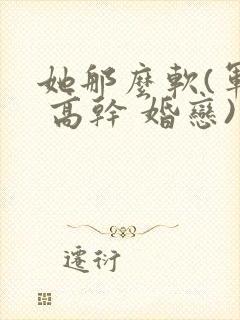 她那麼軟(軍
高幹 婚戀)
遷衍